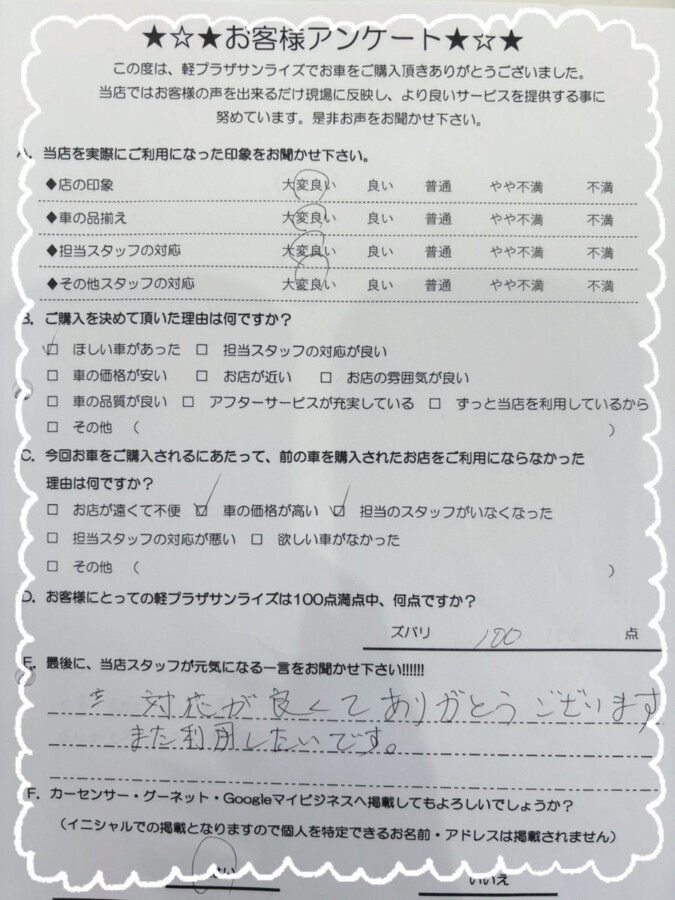 ★☆★お客様アンケート★☆★
この度は、軽プラザサンライズでお車をご購入頂きありがとうございました。
当店ではお客様の声を出来るだけ現場に反映し、より良いサービスを提供する事に
努めています。是非お声をお聞かせ下さい。
A. 当店を実際にご利用になった印象をお聞かせ下さい。
◆店の印象 大変良い 良い 普通 やや不満 不満
◆車の品揃え 大変良い 良い 普通 やや不満 不満
◆担当スタッフの対応 大変良い 良い 普通 やや不満 不満
◆その他スタッフの対応 大変良い 良い 普通 やや不満 不満
B. ご購入を決めて頂いた理由は何ですか？
☑ ほしい車があった □ 担当スタッフの対応が良い
□ 車の価格が安い □ お店が近い □ お店の雰囲気が良い
□ 車の品質が良い □ アフターサービスが充実している □ ずっと当店を利用しているから
□ その他 （ ）
C. 今回お車をご購入されるにあたって、前の車を購入されたお店をご利用にならなかった
理由は何ですか？
□ お店が遠くて不便 ☑ 車の価格が高い ☑ 担当のスタッフがいなくなった
□ 担当スタッフの対応が悪い □ 欲しい車がなかった
□ その他 （ ）
D. お客様にとっての軽プラザサンライズは100点満点中、何点ですか？
ズバリ 100 点
E. 最後に、当店スタッフが元気になる一言をお聞かせ下さい!!!!!!
対応が良くてありがとうございます
また利用したいです。
F. カーセンサー・グーネット・Googleマイビジネスへ掲載してもよろしいでしょうか？
（イニシャルでの掲載となりますので個人を特定できるお名前・アドレスは掲載されません）
はい いいえ